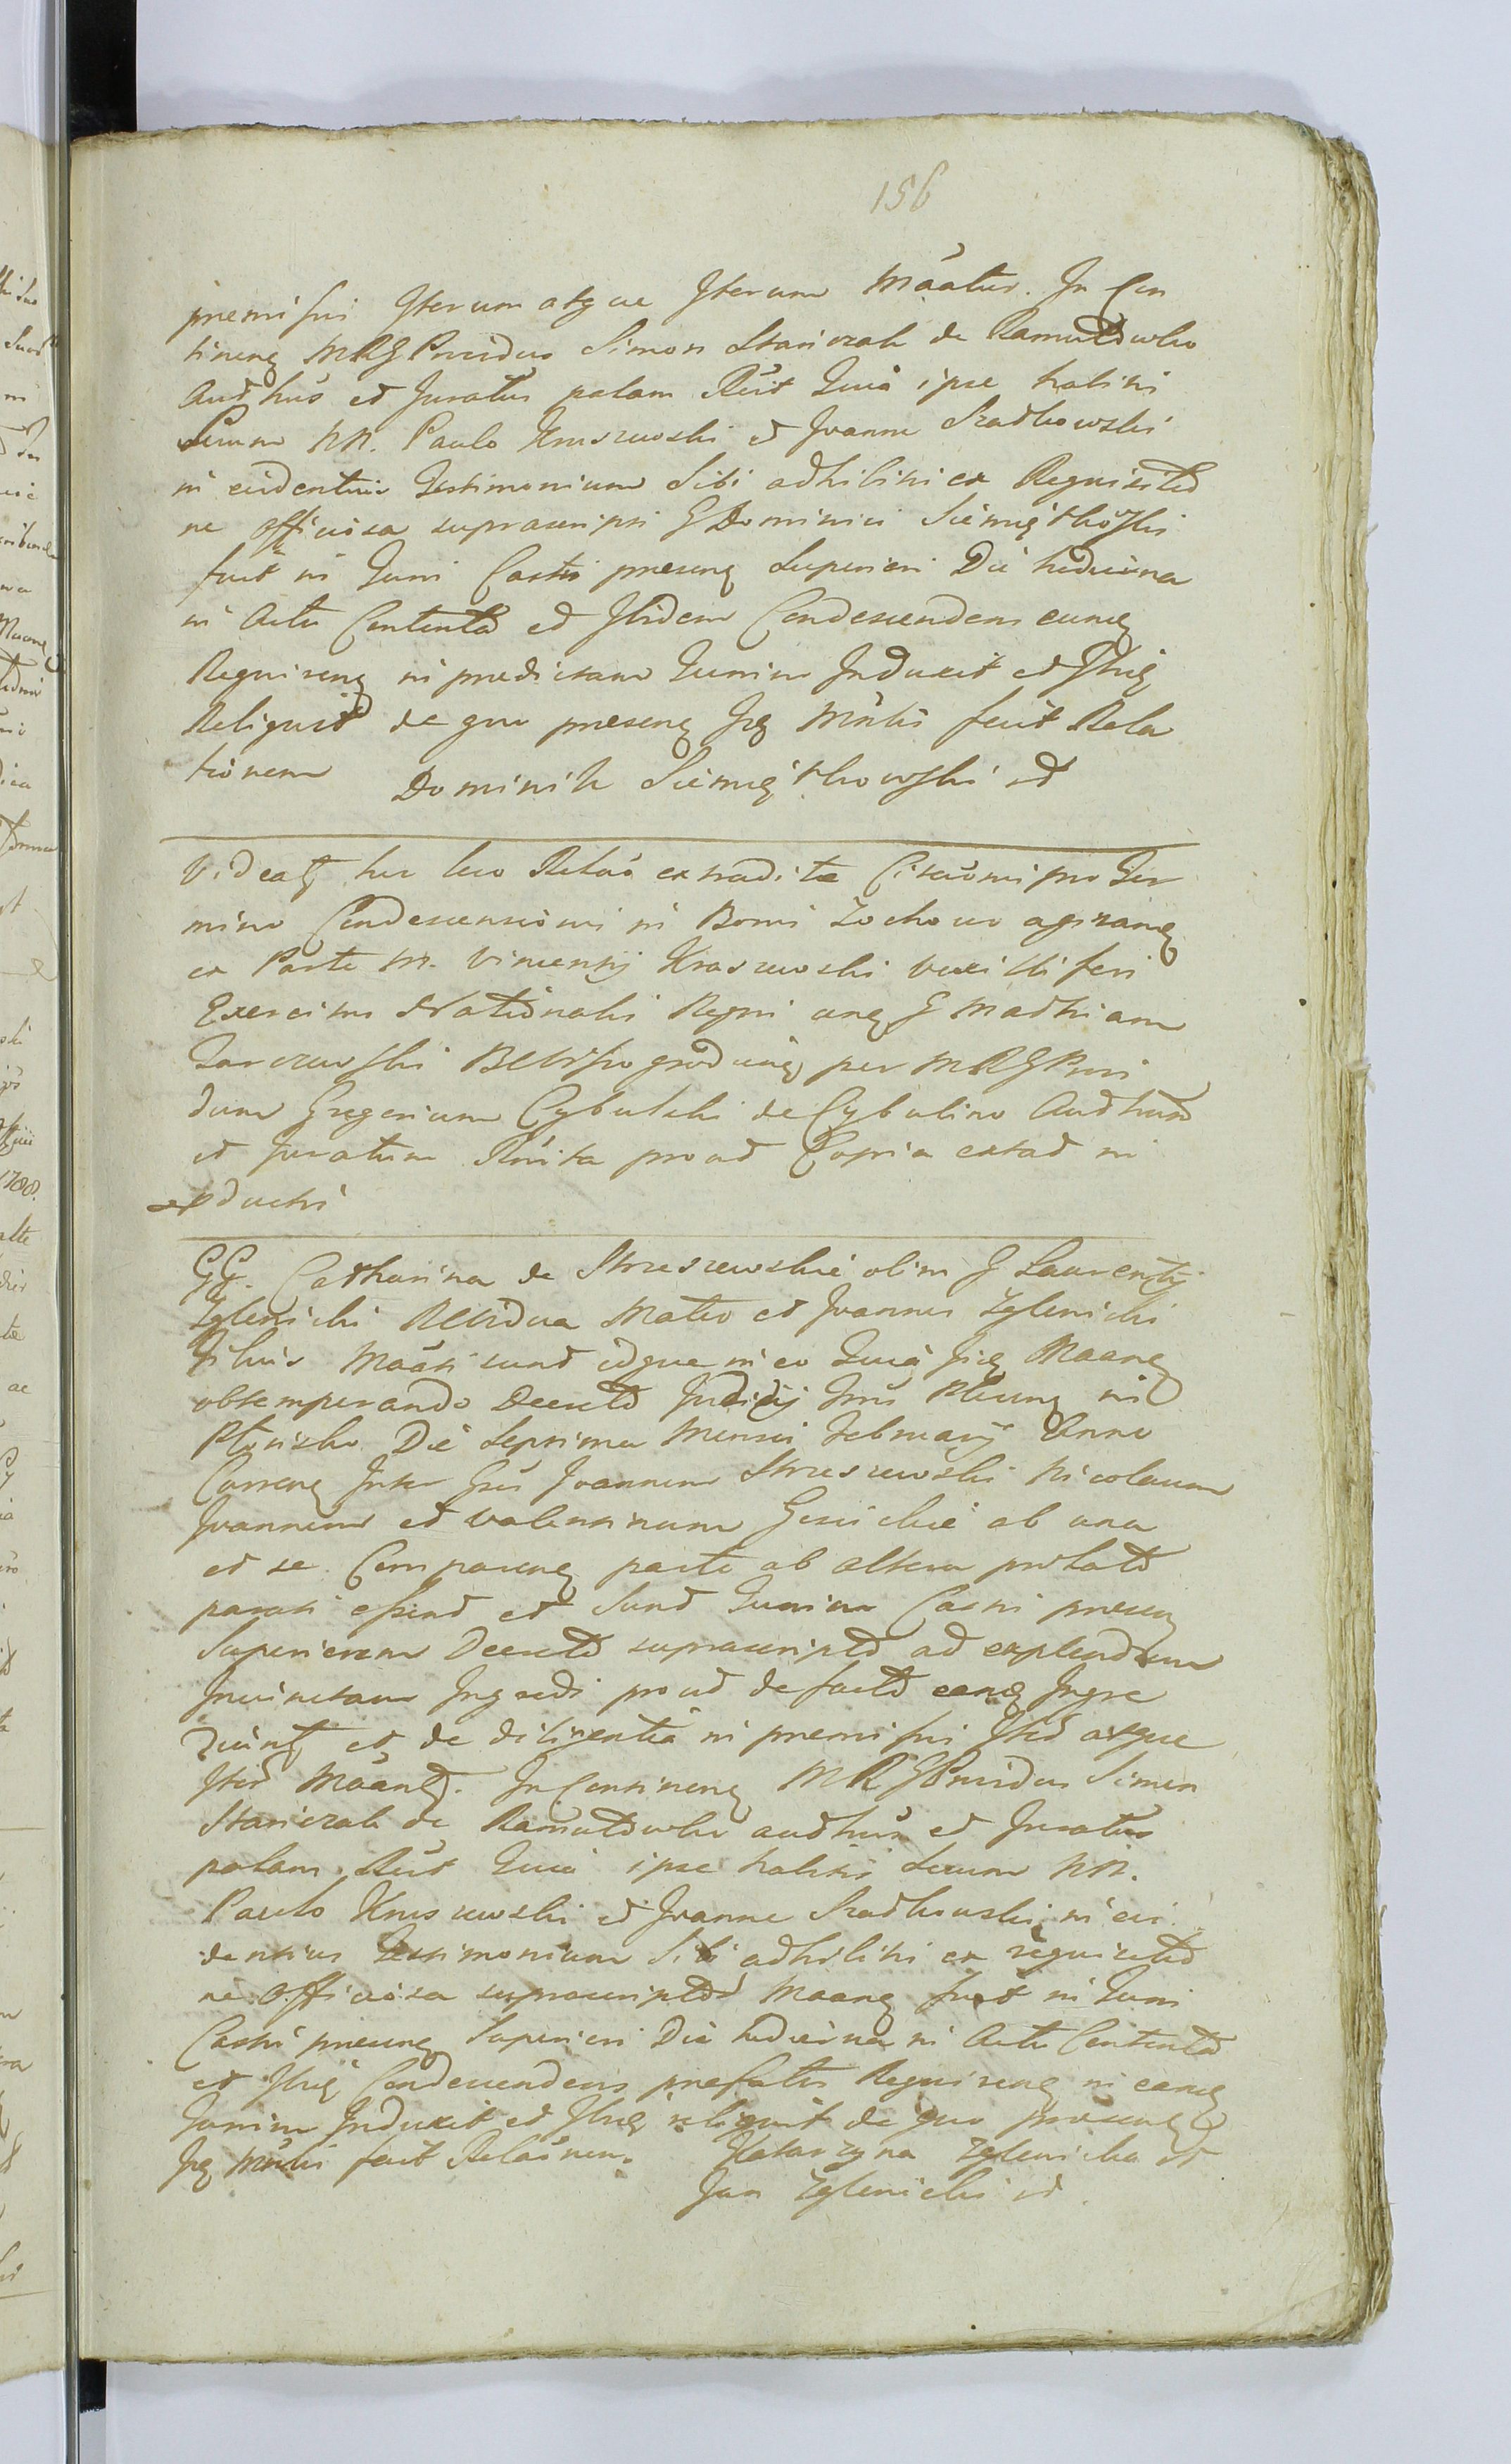 156
premissis Iterum atque Iterum Māatur. In Con
tineng MRG Providus Simon Staniczak de Ramutowko
Authūs et Juratus palam Rēit Quia ipse habitis
Secum NN. Paulo Kruszewski et Joanne Szadkowski
in evidentius Testimonium Sibi adhibitis ex Requisitio
ne officiosa suprascripti G Dominici Siemiątkoski
fuit in Turri Castri preseng Superiori Die hodierna
in Actu Contenta et Ibidem Condescendens eung
Requireng in predictam Turrim Induxit et Ibiq
Reliquit de quo preseng Jrg Mnti fecit Rela
tionem Dominik Siemiątkowski
Videatq hic loco Relāo extradita Citaōnis pro Ter
mino Condescensionis in Bonis Zochowo
ex Parte M. Vincentij Kraszewski Vexilliferi
Exercitus Nationalis Regni ang G Mathiam
per MRG Provi
dum Gregorium Cybulski de Cybulino Authum
et Juratum Rnita prout Copia extat in
pductis
GG. Catharina de Struszewskie olim G Laurentij
Zglenicki Relicta Vidua Mater et Joannes Zglenicki
Filius Māati sunt idque in eo Quia Jsiq Maang
obtemperando Decreto Judicij Trns Plocen in
Plonisko Die Septima Mensis Februarij Anno
Curreng Inter Gsos Joannem Struszewski Nicolaum
Joannem et Valentinum ab una
et se Compareng parte ab altera prolato
parati essent et sunt Turrim Castri preseng
Superiorem Decreto suprascripto ad explendam
Ingredi prout de facto eang Ingre
diunt et de diligentia in premissis Itrd atque
Itrd Māant. In Contineng MRG Providus Simon
Staniczak de Ramutowko authūs et Juratus
palam Rēit Quia ipse habitis Secum NN.
Paulo Kruszewski et Joanne Szadkowski in evi
dentius Testimonium Sibi adhibitis ex requisitio
ne Officiosa suprascripto Maang fuit in Turri
Castri preseng Superiori Die hodierna in Actu Contenta
et Ibiq Condescendens prefatos Requireng in eang
Turrim Induxit et Ibiq reliquit de quo preseng
Jrg Mnti fecit Relaōnem. Katarzyna Zglenicka
Jan Zglenicki